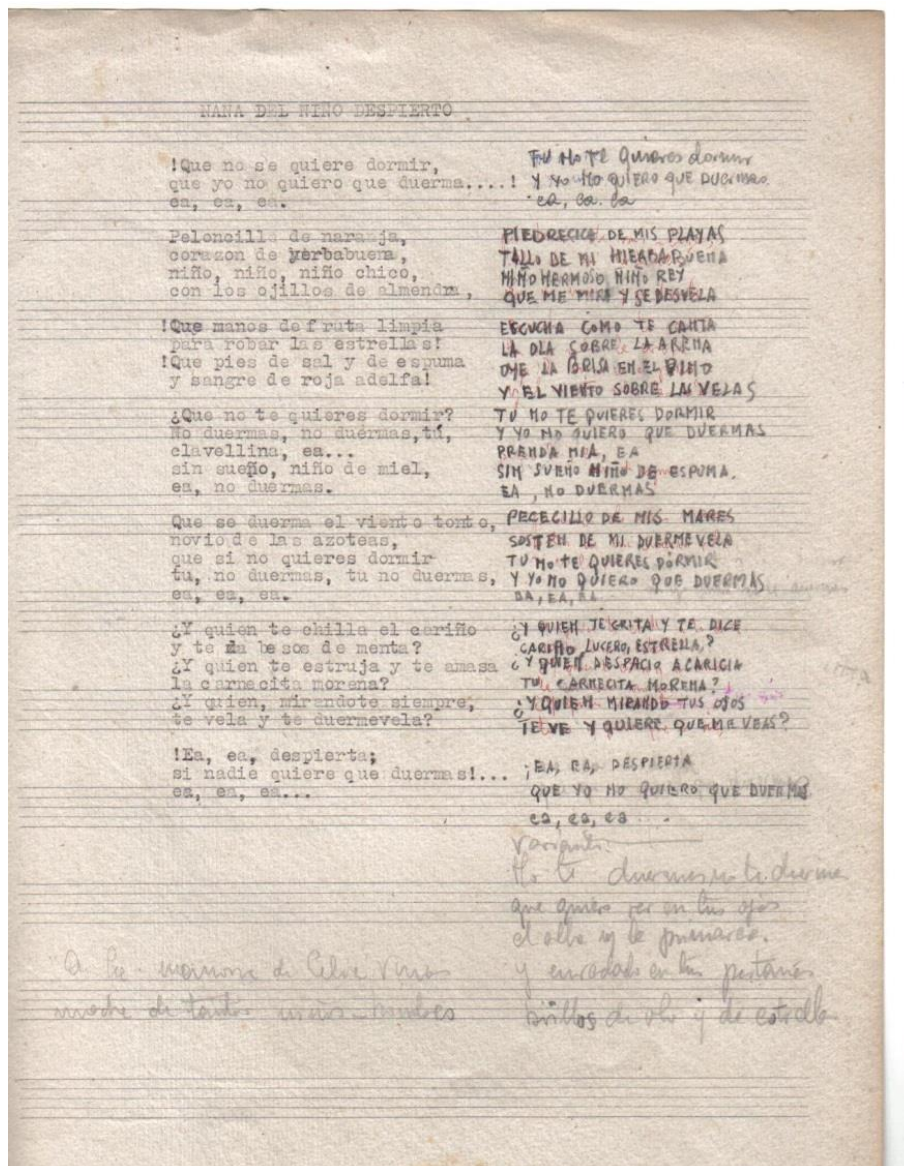 NANA DEL NIÑO DESPIERTO
!Que no se quiere dormir,
que yo no quiero que duerma....!
ea, ea, ea.
Peloncillo de naranja,
corazon de yerbabuena,
niño, niño, niño chico,
con los ojillos de almendra,
!Que manos de fruta limpia
para robar las estrellas!
!Que pies de sal y de espuma
y sangre de roja adelfa!
¿Que no te quieres dormir?
No duermas, no duermas,tú,
clavellina, ea...
sin sueño, niño de miel,
ea, no duermas.
Que se duerma el viento tonto,
novio de las azoteas,
que si no quieres dormir
tu, no duermas, tu no duermas,
ea, ea, ea.
¿Y quien te chilla el cariño
y te da besos de menta?
¿Y quien te estruja y te amasa
la carnecita morena?
¿Y quien, mirandote siempre,
te vela y te duermevela?
!Ea, ea, despierta;
si nadie quiere que duermas!...
ea, ea, ea...
TU NO TE Quieres dormir
Y YO NO QUIERO QUE DUERMAS
ea, ea. ea
PIEDRECICA DE MIS PLAYAS
TALLO DE MI HIERBABUENA
NIÑO HERMOSO NIÑO REY
QUE ME MIRA Y SE DESVELA
ESCUCHA COMO TE CANTA
LA OLA SOBRE LA ARENA
OYE LA BRISA EN EL PINO
Y EL VIENTO SOBRE LAS VELAS
TU NO TE QUIERES DORMIR
Y YO NO QUIERO QUE DUERMAS
PRENDA MIA, EA
SIN SUEÑO NIÑO DE ESPUMA.
EA, NO DUERMAS
PECECILLO DE MIS MARES
SOSTEN DE MI DUERMEVELA
TU NO TE QUIERES DORMIR
Y YO NO QUIERO QUE DUERMAS
EA, EA, EA
¿Y QUIEN TE GRITA Y TE DICE
CARIÑO, LUCERO, ESTRELLA?
¿Y QUIEN DESPACIO ACARICIA
TU CARNECITA MORENA?
¿Y QUIEN MIRANDO TUS OJOS
TE VE Y QUIERE QUE ME VEAS?
¡EA, EA, DESPIERTA
QUE YO NO QUIERO QUE DUERMAS
ea, ea, ea ...
Variante
No te duermas no te duermas
que quiero ver en tus ojos
el alba y la primavera.
y enredado en tus pestañas
brillos de ola y de estrella
A la memoria de
madre de tantos niños